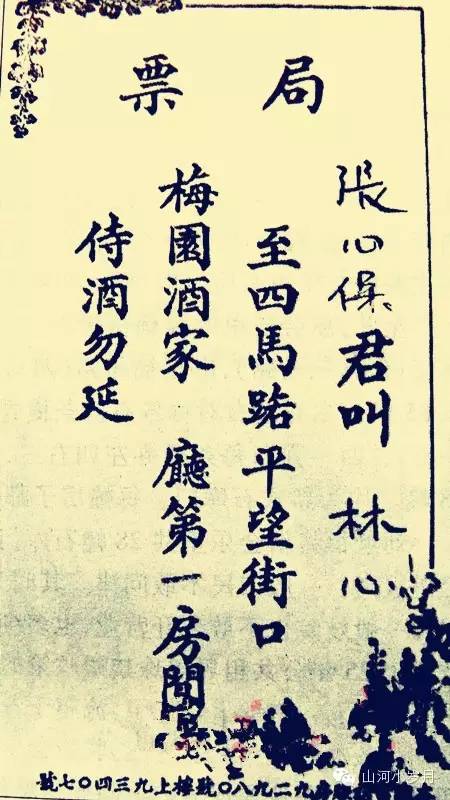 局票
張心保君叫 林心
至四馬路平望街口
梅園酒家 廳第一房間
侍酒勿延
九二九八〇號樓上九三四〇七號
山河小岁月